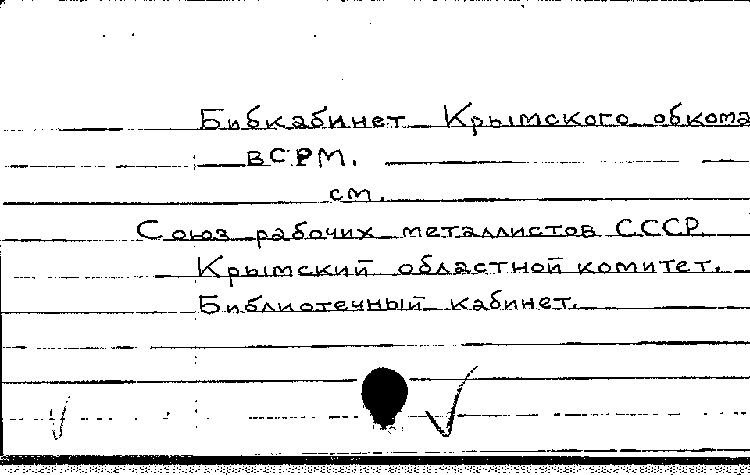 Бибкабинет Крымского обкома
ВСРМ.
см.
Союз рабочих металлистов СССР.
Крымский областной комитет.
Библиотечный кабинет.